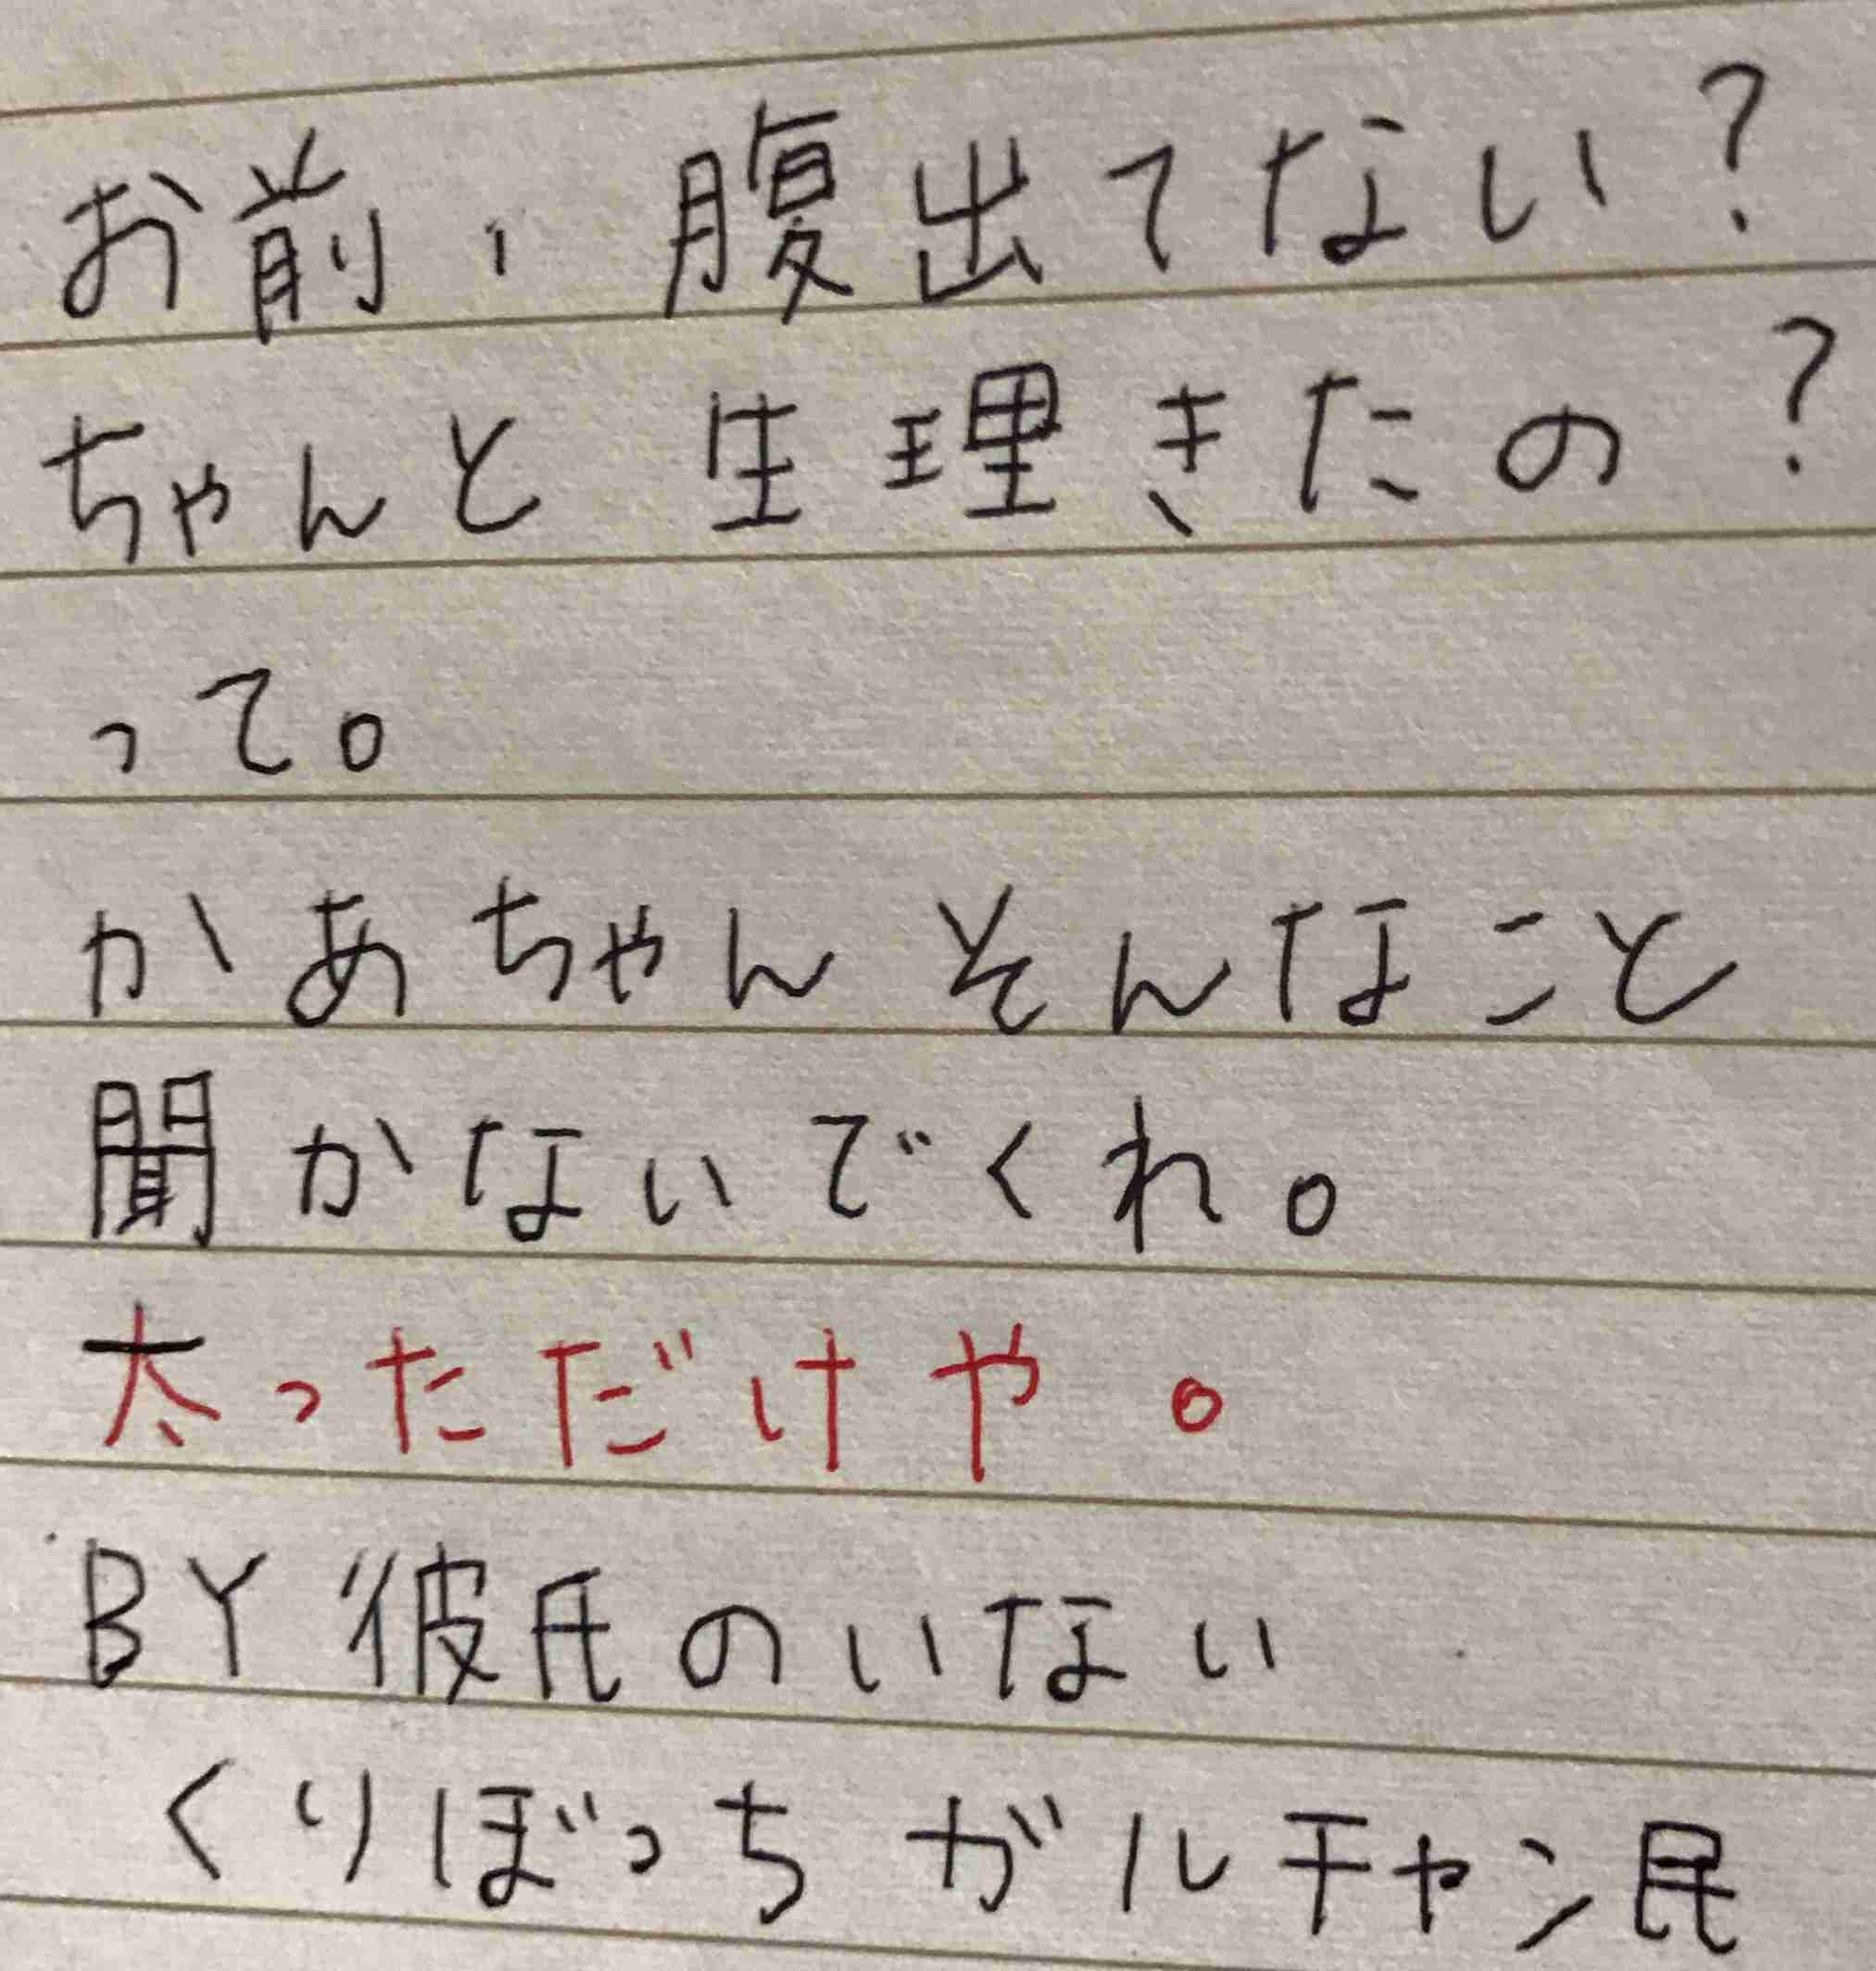 お前、腹出てない?
ちゃんと生理きたの?
って。
かあちゃんそんなこと
聞かないでくれ。
太っただけや。
BY彼氏のいない
くりぼっちガルチャン民